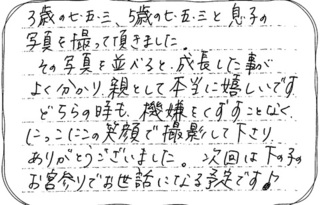 3歳の七・五・三、5歳の七・五・三と息子の
写真を撮って頂きました。
その写真を並べると、成長した事が
よく分かり、親として本当に嬉しいです
どちらの時も、機嫌をくずすことなく
にっこにこの笑顔で撮影して下さり
ありがとうございました。次回は下の子の
お宮参りでお世話になる予定です♪